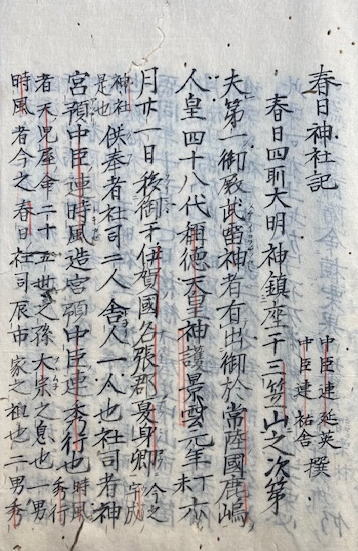 春日神社記
中臣連延英
中臣連祐舎 撰
春日四所大明神鎮座于三笠山之次第
夫第一御殿武雷神者有出御於常陸國鹿嶋
人皇四十八代稱徳天皇神護景雲元年丁未六
月廿一日移御于伊賀國名張郡夏身郷 今之宇成
神社是也 供奉者社司二人舎人一人也社司者神
宮預中臣連時風造宮預中臣連秀行也 時風秀行
者天児屋命二十五世之孫大宗之息也一男
時風者今之春日社司辰市家之祖也二男秀